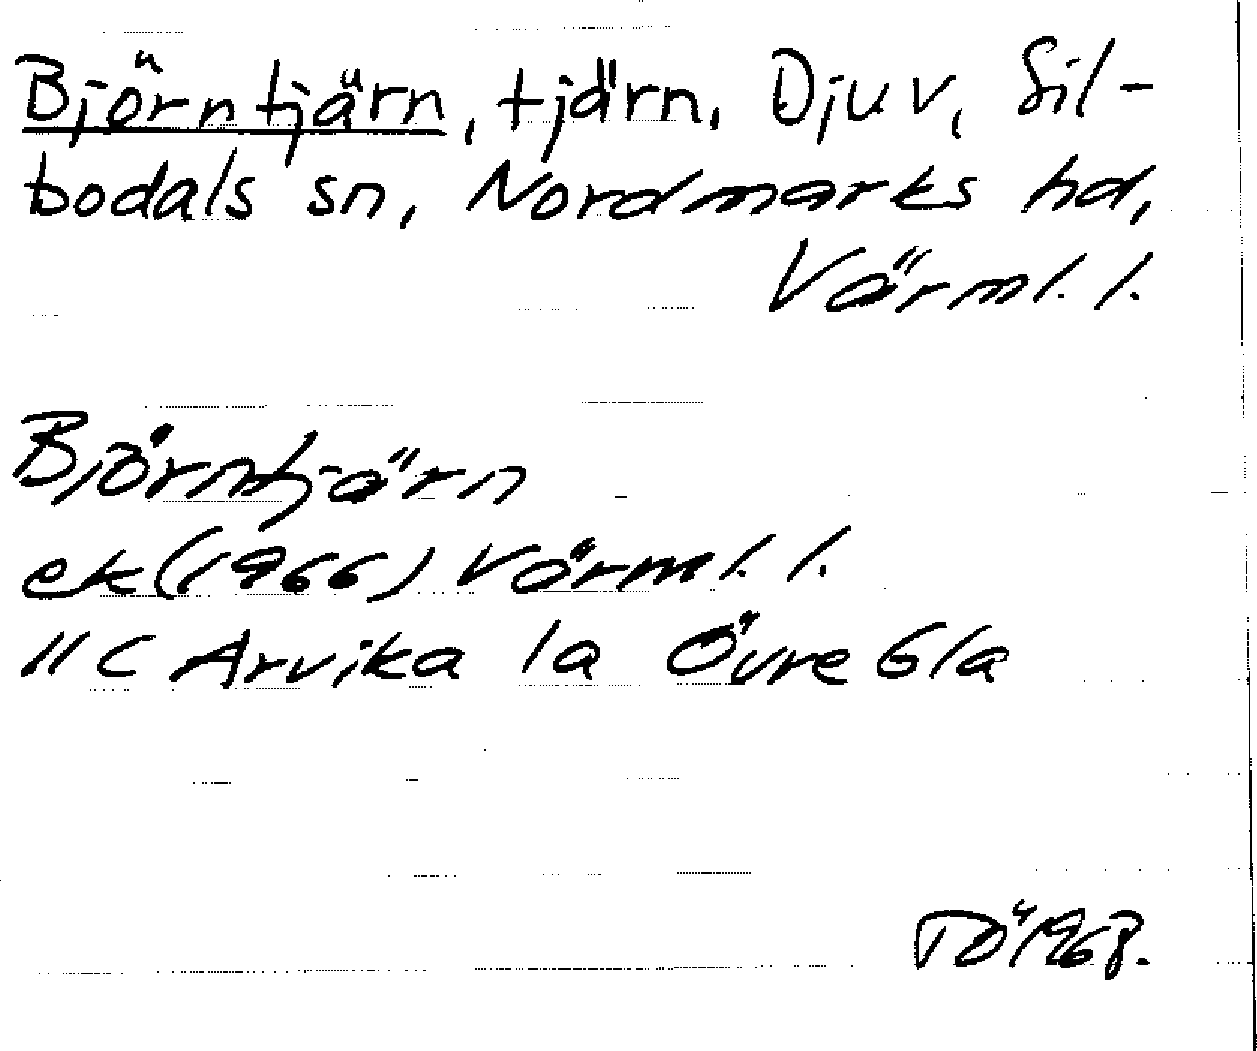 Björntjärn, tjärn, Djuv, Sil-
bodals sn, Nordmarks hd,
Värml. l.
Björntjärn
ek (1966) Värml. l.
11C Arvika 1a Övre Gla
TÖ 1968.